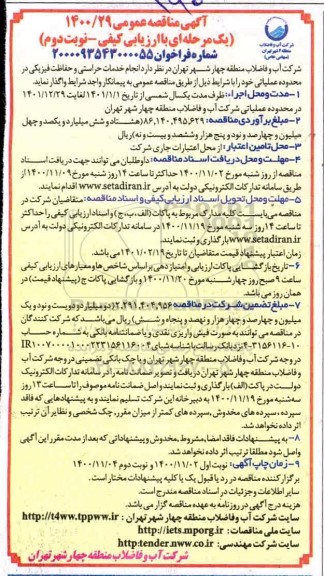 آگهی مناقصه عمومی ۱۴۰۰/۲۹
(یک مرحله ای با ارزیابی کیفی - نوبت دوم)
شماره فراخوان ۲۰۰۰۰۹۳۵۴۳۰۰۰۰۵۵
شرکت آب و فاضلاب
منطقه ۴ شهر تهران
(سهامی خاص)
شرکت آب و فاضلاب منطقه چهار شهر تهران در نظر دارد انجام خدمات حراستی و حفاظت فیزیکی در
محدوده عملیاتی خود را با شرایط ذیل از طریق مناقصه عمومی به پیمانکار واجد شرایط واگذار نماید.
۱- مدت و محل اجرا: ظرف مدت یکسال شمسی از تاریخ ۱۴۰۱/۱/۱ لغایت ۱۴۰۱/۱۲/۲۹
در محدوده عملیاتی شرکت آب و فاضلاب منطقه چهار شهر تهران
۲- مبلغ برآوردی مناقصه: ۸۶,۱۴۰,۴۹۵,۶۲۹ (هشتاد و شش میلیارد و یکصد و چهل
میلیون و چهارصد و نود و پنج هزار و ششصد و بیست و نه) ریال
۳- محل تامین اعتبار: از محل اعتبارات جاری شرکت
۴- مهلت و محل دریافت اسناد مناقصه: داوطلبان می توانند جهت دریافت اسناد
مناقصه از روز شنبه مورخ ۱۴۰۰/۱۱/۰۲ حداکثر تا ساعت ۱۴ روز شنبه مورخ ۱۴۰۰/۱۱/۰۹ از
طریق سامانه تدارکات الکترونیکی دولت به آدرس www.setadiran.ir اقدام نمایند.
۵- مهلت و محل تحویل اسناد ارزیابی کیفی و اسناد مناقصه: متقاضیان شرکت در
مناقصه می بایست کلیه مدارک مربوط به پاکات (الف، ب، ج) و اسناد ارزیابی کیفی را حداکثر
تا ساعت ۱۴ روز سه شنبه مورخ ۱۴۰۰/۱۱/۱۹ در سامانه تدارکات الکترونیکی دولت به آدرس
www.setadiran.ir بارگذاری و ثبت نمایند.
زمان اعتبار پیشنهاد قیمت متقاضیان تا تاریخ ۱۴۰۱/۰۲/۱۹ می باشد.
۶- تاریخ بازگشایی پاکات ارزیابی و امتیازدهی بر اساس شاخص ها و معیارهای ارزیابی کیفی
ساعت ۹ صبح روز چهارشنبه مورخ ۱۴۰۰/۱۱/۲۰ و بازگشایی پاکات ج (پیشنهاد قیمت) در
همان روز می باشد.
۷- مبلغ تضمین شرکت در مناقصه ۲,۲۹۱,۴۰۴,۹۵۶ (دو میلیارد و دویست و نود و یک
میلیون و چهارصد و چهار هزار و نهصد و پنجاه و شش) ریال می باشد که شرکت کنندگان
در مناقصه می توانند به صورت فیش واریزی نقدی و یا ضمانتنامه بانکی به شماره حساب
در وجه شرکت آب و فاضلاب منطقه چهار شهر تهران و یا چک بانکی تضمینی در وجه شرکت آب
و فاضلاب منطقه چهار شهر تهران دریافت و تصویر ضمانت نامه را در سامانه تدارکات الکترونیک
دولت در پاکت (الف) بارگذاری و ثبت نمایند و اصل ضمانت نامه موصوف را تا ساعت ۱۳ روز
سه شنبه مورخ ۱۴۰۰/۱۱/۱۹ به دبیرخانه این شرکت تسلیم نمایند و به پیشنهادهایی که فاقد
سپرده، سپرده های مخدوش، سپرده های کمتر از میزان مقرر، چک شخصی و نظایر آن ترتیب
اثر داده نخواهد شد.
۸- به پیشنهادات فاقد امضا، مشروط، مخدوش و پیشنهاداتی که بعد از مدت مقرر این آگهی
واصل شود مطلقا ترتیب اثر داده نخواهد شد.
۹- زمان چاپ آگهی: نوبت اول ۱۴۰۰/۱۱/۰۲ و نوبت دوم ۱۴۰۰/۱۱/۰۴
برگزارکننده مناقصه در رد یا قبول یک یا کلیه پیشنهادات مختار است.
سایر اطلاعات و جزئیات در اسناد مناقصه مندرج است.
هزینه درج آگهی در روزنامه به عهده مناقصه گزار می باشد.
سایت شرکت آب و فاضلاب منطقه چهار شهر تهران: http://t4ww.tppww.ir
سایت ملی مناقصات: http://iets.mporg.ir
سایت شرکت مهندسی: http:tender.nww.co.ir
شرکت آب و فاضلاب منطقه چهار شهر تهران